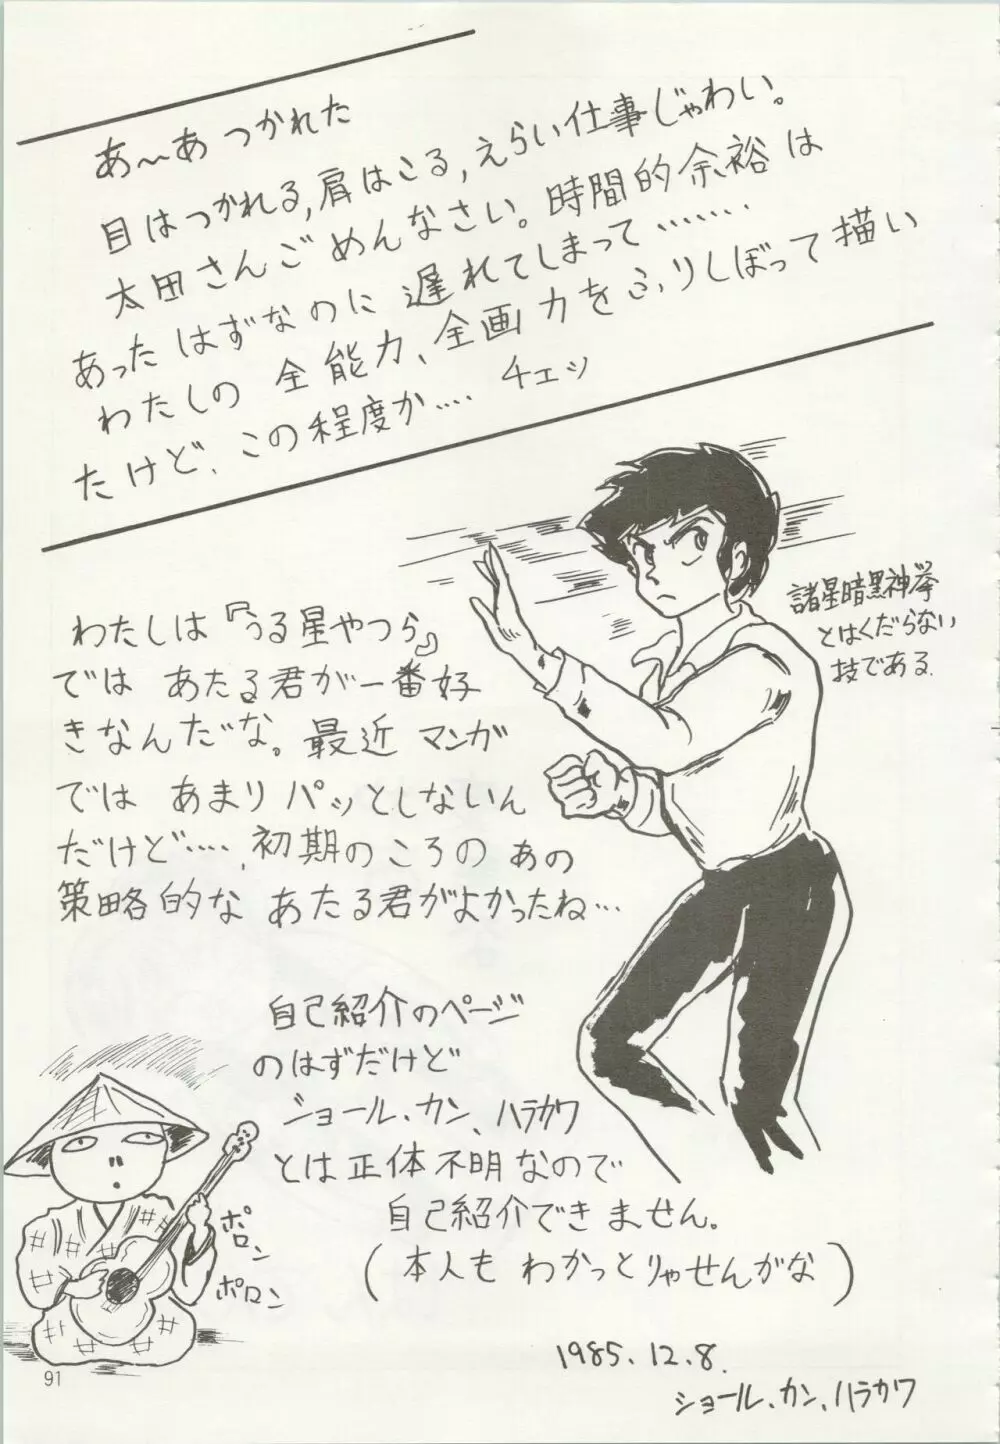 あ〜あ つかれた
目はつかれる,肩はこる,えらい仕事じゃわい。
太田さんごめんなさい。時間的余裕は
あったはずなのに 遅れてしまって……
わたしの 全能力、全画力をふりしぼって描い
たけど、この程度か…. チェッ
わたしは『うる星やつら』
では あたる君が一番好
きなんだな。最近 マンガ
では あまりパッとしないん
だけど…..、初期のころの あの
策略的な あたる君がよかったね…
諸星暗黒神拳
とはくだらない
技である.
自己紹介のページ
のはずだけど
ショール、カン、ハラカワ
とは 正体不明なので
自己紹介できません。
(本人も わかっとりゃせんがな)
ポロン
ポロン
1985.12.8.
ショール、カン、ハラカワ
91